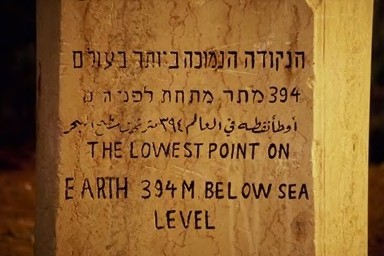 הנקודה הנמוכה ביותר בעולם
394 מתר מתחת לפני ה ם
أوطأ نقطة في العالم ٣٩٤ متر تحت سطح البحر
THE LOWEST POINT ON
EARTH 394 M BELOW SEA
LEVEL